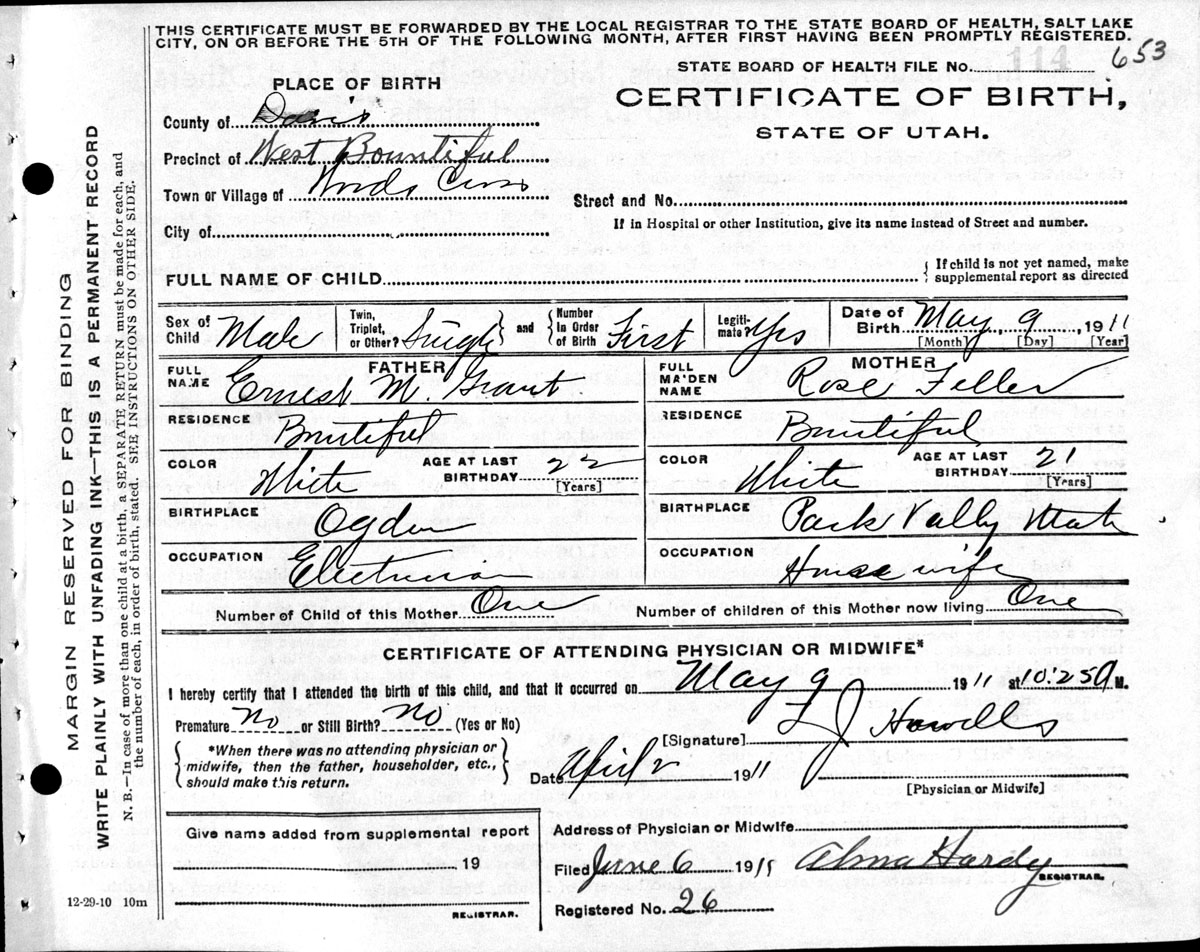 THIS CERTIFICATE MUST BE FORWARDED BY THE LOCAL REGISTRAR TO THE STATE BOARD OF HEALTH, SALT LAKE
CITY, ON OR BEFORE THE 5TH OF THE FOLLOWING MONTH, AFTER FIRST HAVING BEEN PROMPTLY REGISTERED.
STATE BOARD OF HEALTH FILE No. 653
114
PLACE OF BIRTH
CERTIFICATE OF BIRTH,
STATE OF UTAH.
County of Davis
Precinct of West Bountiful
Town or Village of Woods Cross
Street and No.
If in Hospital or other Institution, give its name instead of Street and number.
City of
FULL NAME OF CHILD
If child is not yet named, make
supplemental report as directed
Sex of Child Male
Twin, Triplet, or Other? Single and Number in Order of Birth First
Legiti-mate? Yes
Date of Birth May 9, 1911
[Month] [Day] [Year]
FATHER
FULL NAME Ernest M. Grant
RESIDENCE Bountiful
COLOR White AGE AT LAST BIRTHDAY 22
[Years]
BIRTHPLACE Ogden
OCCUPATION Electrician
MOTHER
FULL MAIDEN NAME Rose Feller
RESIDENCE Bountiful
COLOR White AGE AT LAST BIRTHDAY 21
[Years]
BIRTHPLACE Park Vally Utah
OCCUPATION Housewife
Number of Child of this Mother One
Number of children of this Mother now living One
CERTIFICATE OF ATTENDING PHYSICIAN OR MIDWIFE*
I hereby certify that I attended the birth of this child, and that it occurred on May 9 1911 at 10.25 A M.
Premature No or Still Birth? No (Yes or No)
*When there was no attending physician or
midwife, then the father, householder, etc.,
should make this return.
[Signature] Howells
Date April 2 1911
[Physician or Midwife]
Give name added from supplemental report
19
REGISTRAR.
Address of Physician or Midwife
Filed June 6 1911 Alma Hardy
REGISTRAR.
Registered No. 26
12-29-10 10m
MARGIN RESERVED FOR BINDING
WRITE PLAINLY WITH UNFADING INK—THIS IS A PERMANENT RECORD
N. B.—In case of more than one child at a birth, a SEPARATE RETURN must be made for each, and
the number of each, in order of birth, stated. SEE INSTRUCTIONS ON OTHER SIDE.